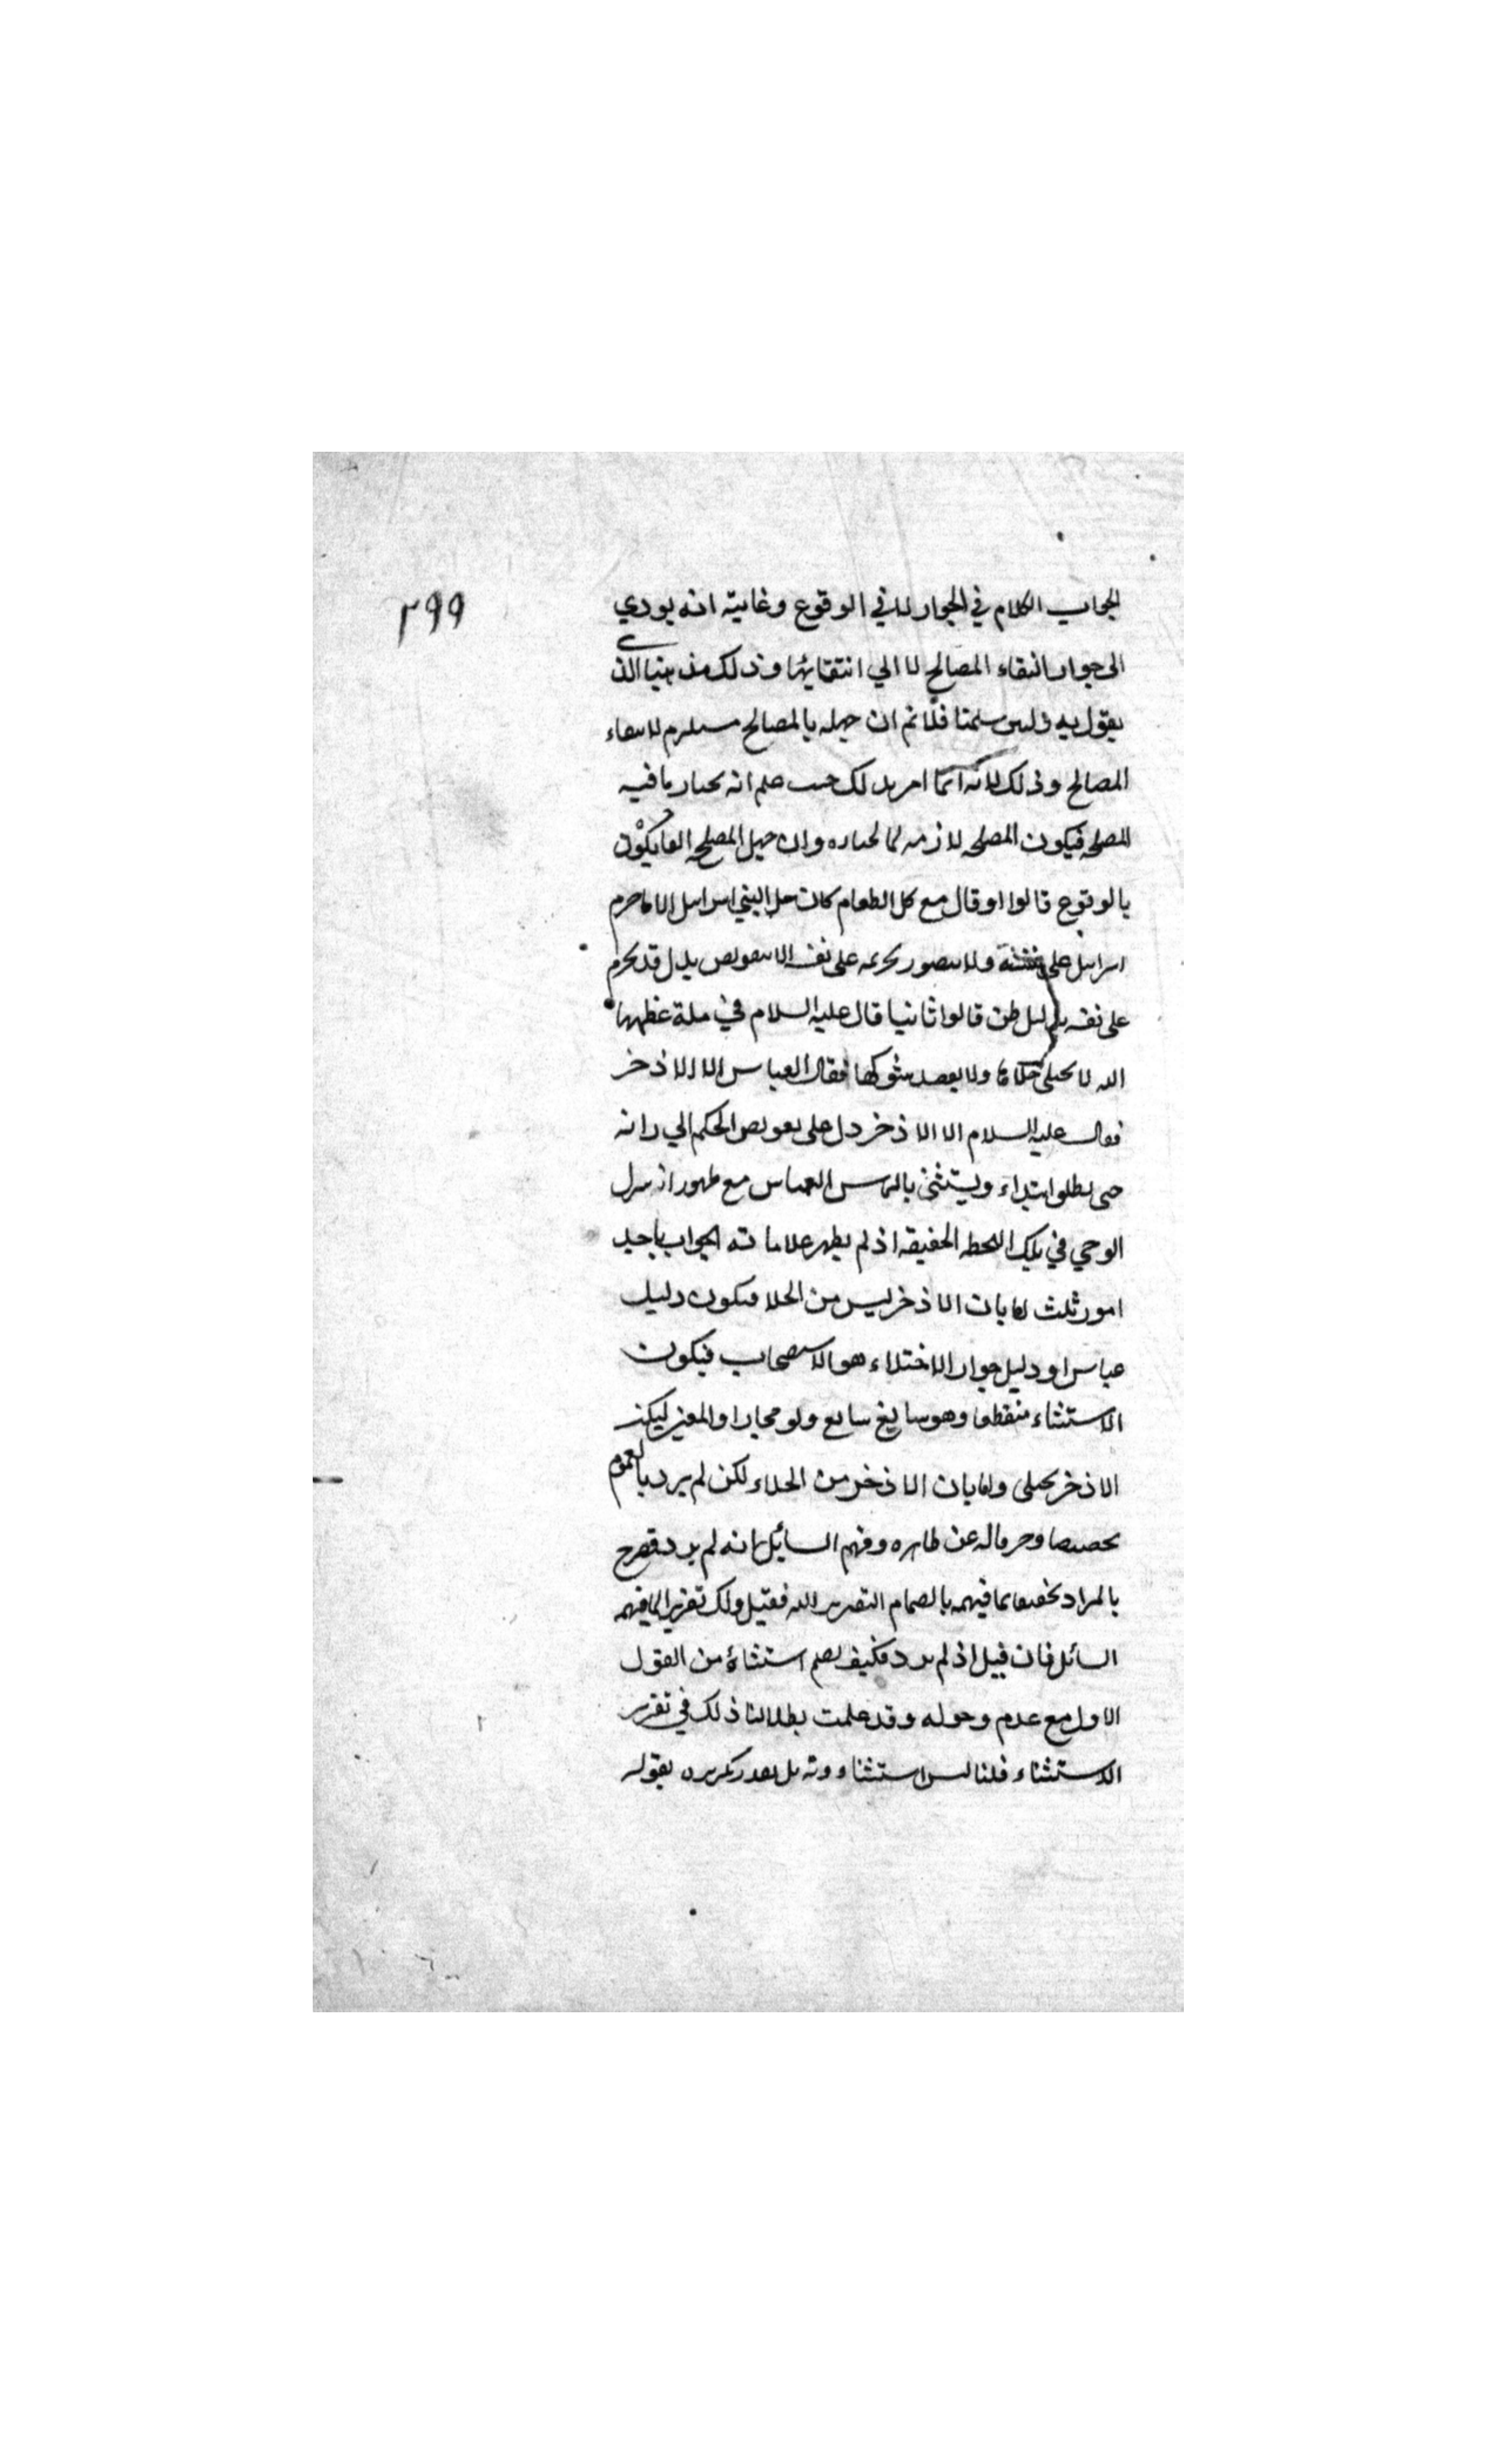 ٢٩٩
الجواب الكلام في الجواز لا في الوقوع وغايته انه يودي
الى جواز انتفاء المصالح لا الي انتقايها وذلك مذهبنا الذي
يقول به ولين سلمنا فلا نم ان جهله بالمصالح مستلزم لانتفاء
المصالح وذلك لانه انما امر بذلك حيث علم انه يختار ما فيه
المصلحه فيكون المصلحه لازمه لما يختاره وان جهل المصلحه
بالوقوع قالوا اولا قال مع كل الطعام كان حلا لبني اسرايل الا ما حرم
اسرايل على نفسه ولا يتصور تحريمه على نفسه الا بتفويض بل قد يحرم
على نفسه بدليل ظن قالوا ثانيا قال عليه السلام في مكة عظمها
الله لا يختلى خلاها ولا يعضد شوكها فقال العباس الا الاذخر
فقال عليه السلام الا الاذخر دل على تفويض الحكم الي رايه
حتى يطلق ابتداء ويستثنى بالتماس العباس مع ظهور انه لم ينزل
الوحي في تلك اللحظه الخفيفه اذ لم يظهر علاماته الجواب باحد
امور ثلث اما بان الاذخر ليس من الخلا فيكون دليل
عباس او دليل جواز الاختلاء هو الاستصحاب فيكون
الاستثناء منقطعا وهو سايغ شايع ولو مجازا والمعنى ليكن
الاذخر يختلى واما بان الاذخر من الخلاء لكن لم يرد بالعموم
تخصيصا وصرفا له عن ظاهره وفهم السايل انه لم يرد فصرح
بالمراد تحقيقا لما فهمه
السائل فان قيل اذ لم يرد فكيف يصح استثناؤه من القول
الاول مع عدم دخوله وقد علمت بطلان ذلك في تقرير
الاستثناء قلنا ليس استثناء منه بل يقدر تكريره بقوله